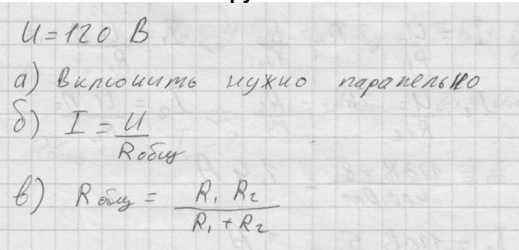 U=120 В
а) Включить нужно парапельно
б) I = U / Rобщ
в) Rобщ = R₁ R₂ / R₁ + R₂